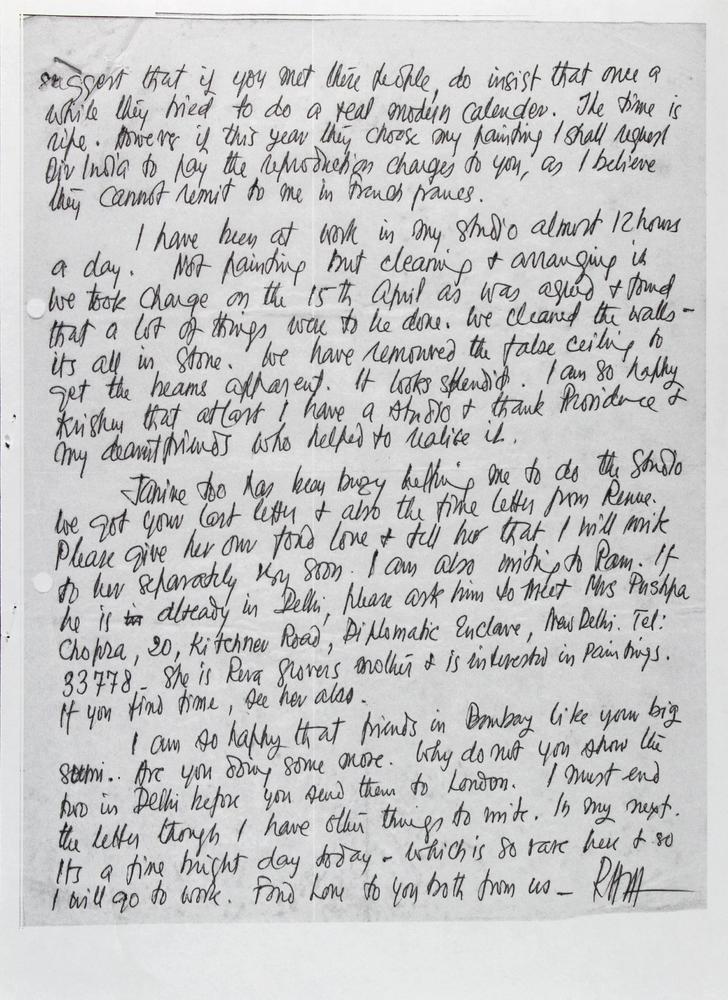 suggest that if you met these people, do insist that once a
while they tried to do a real modern calender. The time is
ripe. However if this year they choose my painting I shall request
Air India to pay the reproduction charges to you, as I believe
they cannot remit to me in french francs.
I have been at work in my studio almost 12 hours
a day. Not painting but cleaning & arranging it
We took charge on the 15th April as was agreed & found
that a lot of things were to be done. We cleaned the walls -
its all in stone. We have removed the false ceiling to
get the beams apparent. It looks splendid. I am so happy
Krishen that atlast I have a studio & thank Providence &
my dearest friends who helped to realise it.
Janine too has been buzy helping me to do the studio
We got your last letter & also the fine letter from Renue.
Please give her our fond love & tell her that I will write
to her separately very soon. I am also writing to Ram. If
he is already in Delhi, please ask him to meet Mrs Pushpa
Chopra, 20, Kitchner Road, Diplomatic Enclave, New Delhi. Tel:
33778 - She is Reva Grovers mother & is interested in paintings.
If you find time, see her also.
I am so happy that friends in Bombay like your big
Are you doing some more. Why do not you show the
two in Delhi before you send them to London. I must end
the letter though I have other things to write. In my next.
Its a fine bright day today - which is so rare here & so
I will go to work. Fond love to you both from us -